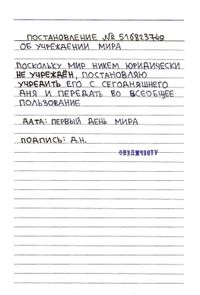 ПОСТАНОВЛЕНИЕ № 516823740
ОБ УЧРЕЖДЕНИИ МИРА
ПОСКОЛЬКУ МИР НИКЕМ ЮРИДИЧЕСКИ
НЕ УЧРЕЖДЁН, ПОСТАНОВЛЯЮ
УЧРЕДИТЬ ЕГО С СЕГОДНЯШНЕГО
ДНЯ И ПЕРЕДАТЬ ВО ВСЕОБЩЕЕ
ПОЛЬЗОВАНИЕ
ДАТА: ПЕРВЫЙ ДЕНЬ МИРА
ПОДПИСЬ: Д.Н.